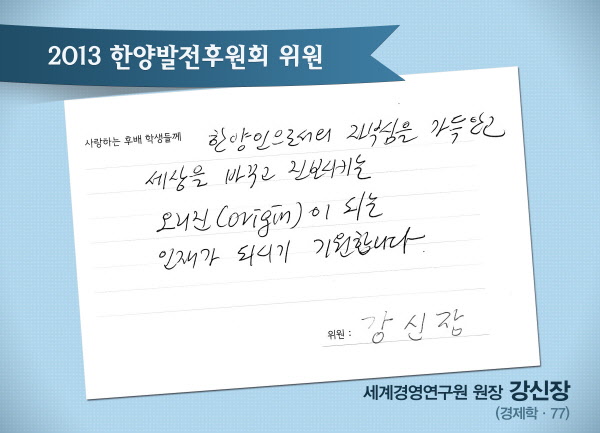 2013 한양발전후원회 위원
사랑하는 후배 학생들께 한양인으로서의 자부심을 가득안고
세상을 바꾸고 진보시키는
오리진(origin)이 되는
인재가 되시기 기원합니다.
위원 : 강신장
세계경영연구원 원장 강신장
(경제학 · 77)